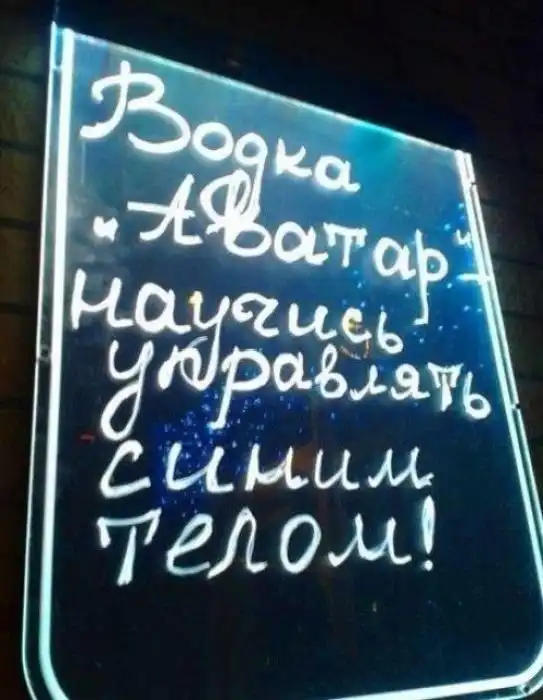 Водка
"Аватар" -
научись
управлять
синим
телом!